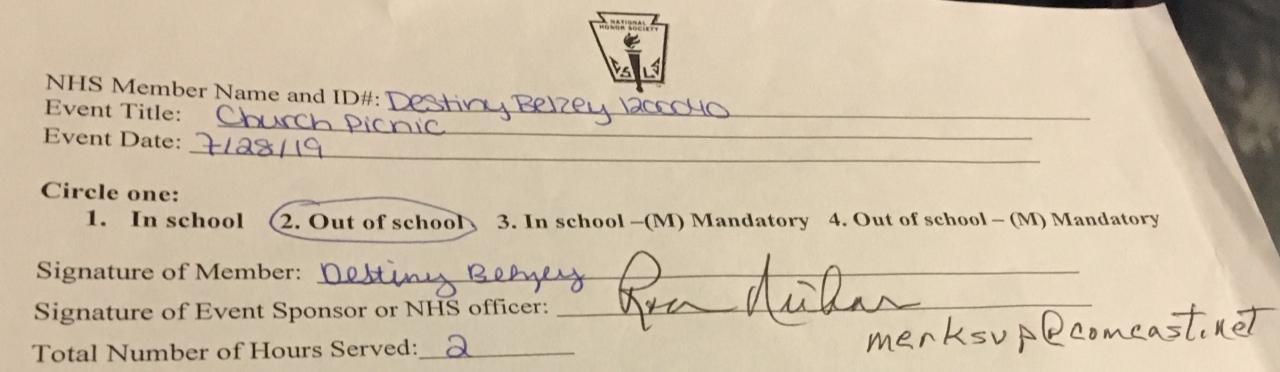 NATIONAL
HONOR SOCIETY
C S L S
NHS Member Name and ID#: Destiny Belzey 1200040
Event Title: Church Picnic
Event Date: 7/28/19
Circle one:
1. In school 2. Out of school 3. In school –(M) Mandatory 4. Out of school – (M) Mandatory
Signature of Member: Destiny Belzey
Signature of Event Sponsor or NHS officer:
merksvp@comcast.net
Total Number of Hours Served: 2